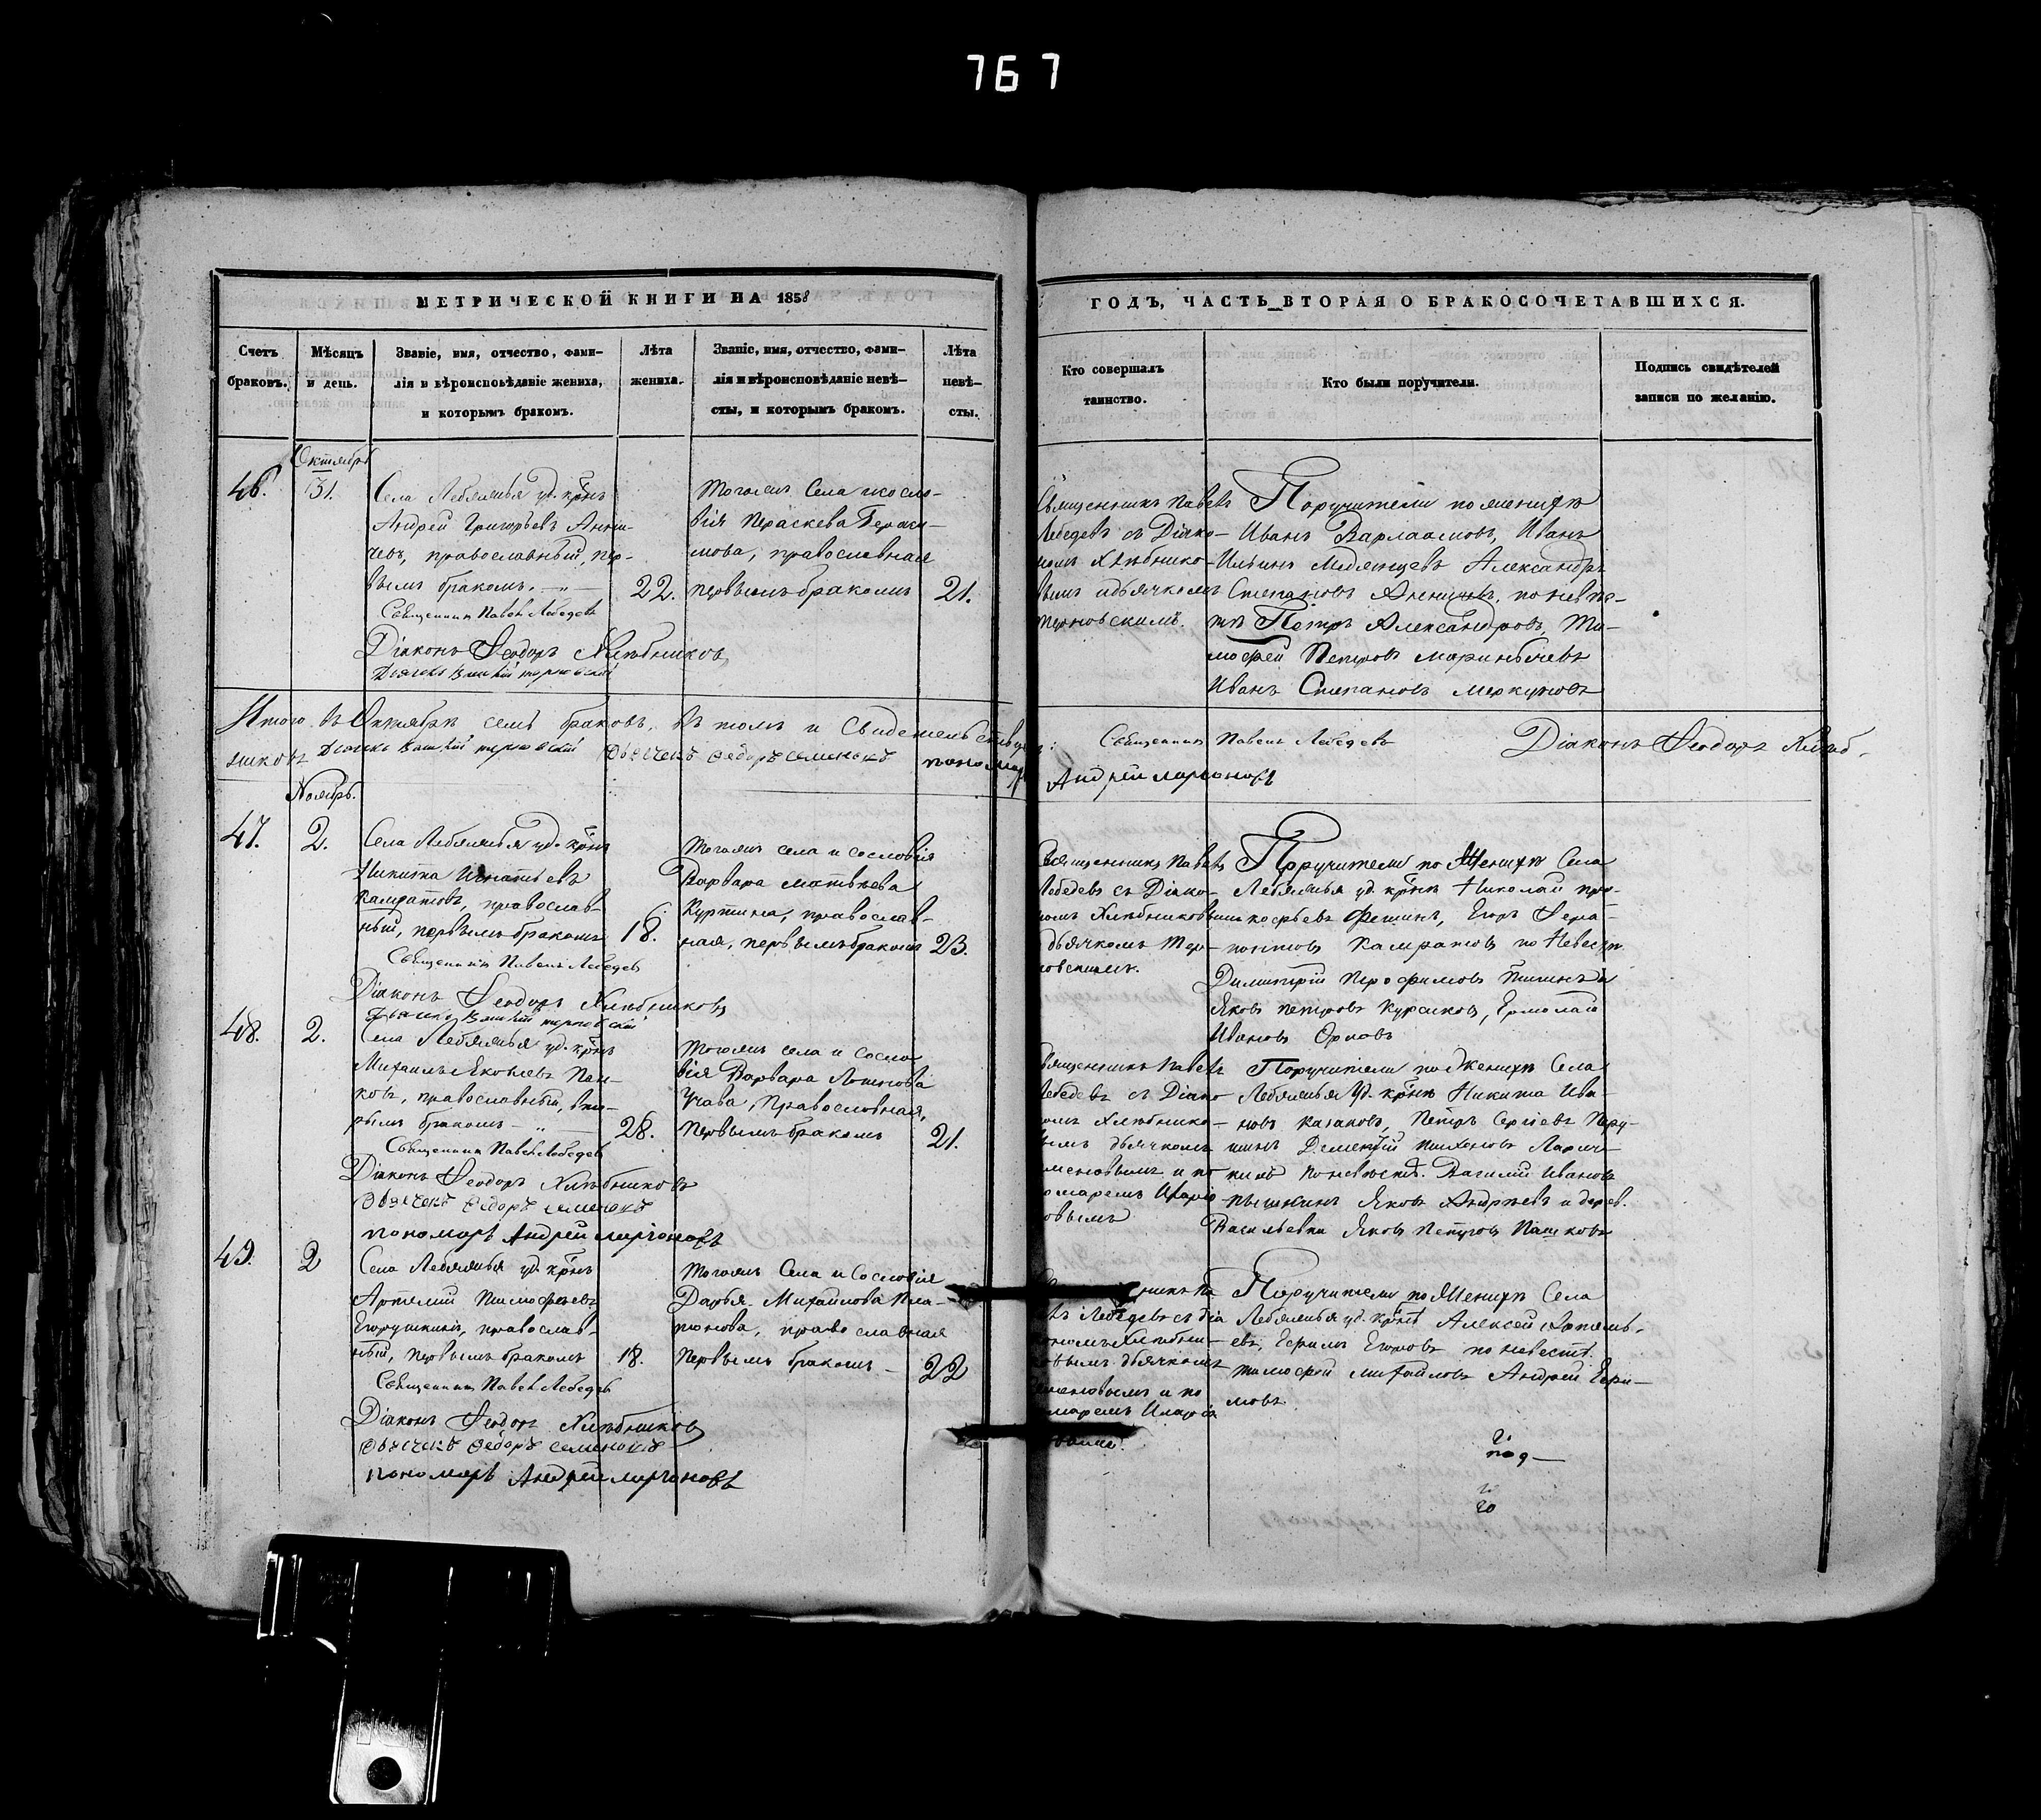 767
МЕТРИЧЕСКОЙ КНИГИ НА 1858
ГОДЪ, ЧАСТЬ ВТОРАЯ О БРАКОСОЧЕТАВШИХСЯ.
Счетъ браковъ.
Мѣсяцъ и день.
Званіе, имя, отчество, фами-
лія и вѣроисповѣданіе жениха,
и которымъ бракомъ.
Лѣта жениха.
Званіе, имя, отчество, фами-
лія и вѣроисповѣданіе невѣ-
сты, и которымъ бракомъ.
Лѣта невѣ-
сты.
Кто совершалъ
таинство.
Кто были поручители.
Подпись свидѣтелей
записи по желанію.
Октябрь
46.
31.
Села Лебяжья уд. крнъ
Андрей Григорьевъ
православный, пер-
вымъ бракомъ.
Священникъ Павелъ Лебедевъ
Діаконъ Ѳеодоръ Хлѣбниковъ
22.
Тогожъ села
Параскева Гераси-
мова, православная
первымъ бракомъ
21.
Священникъ Павелъ
Лебедевъ съ Діако-
номъ Хлѣбнико-
вымъ и дьячкомъ
Терновскимъ.
Поручители по женихѣ
Иванъ Варлаамовъ, Иванъ
Ильинъ Александръ
Степановъ по невѣс-
тѣ Петръ Александровъ, Ти-
мофей Петровъ
Иванъ Степановъ Меркуловъ
Итого въ Октябрѣ семь браковъ. Въ томъ и свидетельствуемъ:
Священникъ Павелъ Лебедевъ
Діаконъ Ѳеодоръ Хлѣб-
никовъ
дьячекъ Федоръ Семеновъ
пономарь
Андрей Ларионовъ
Ноябрь.
47.
2.
Села Лебяжья уд. крнъ
Никита Игнатьевъ
Камратовъ, православ-
ный, первымъ бракомъ
Священникъ Павелъ Лебедевъ
Діаконъ Ѳеодоръ Хлѣбниковъ
18.
Тогожъ села и сословія
Варвара Матвѣева
Куртина, православ-
ная, первымъ бракомъ
23.
Священникъ Павелъ
Лебедевъ съ Діако-
номъ Хлѣбниковымъ
дьячкомъ Тер-
новскимъ.
Поручители по женихѣ Села
Лебяжья уд. крнъ Николай Про-
кофьевъ Фешинъ, Егоръ
Камратовъ по невестѣ
Димитрій
Яковъ Петровъ Курсковъ, Ермолай
Ивановъ Орловъ
48.
2.
Села Лебяжья уд. крнъ
Михаилъ Яковлевъ Паш-
ковъ, православный, вто-
рымъ бракомъ
Священникъ Павелъ Лебедевъ
Діаконъ Ѳеодоръ Хлѣбниковъ
дьячекъ Федоръ Семеновъ
пономарь Андрей Ларионовъ
28.
Тогожъ села и сосло-
вія Варвара
православная,
первымъ бракомъ
21.
Священникъ Павелъ
Лебедевъ съ Діако-
номъ Хлѣбнико-
вымъ дьячкомъ
Семеновымъ и по-
номаремъ Иларіо-
новымъ
Поручители по женихѣ Села
Лебяжья уд. крнъ Никита Ива-
новъ Казаковъ, Петръ Сергѣевъ
Дементій
по невѣстѣ. Василій Ивановъ
Яковъ Андрѣевъ и дерев.
Васильевки Яковъ Петровъ Пашковъ
49.
2
Села Лебяжья уд. крнъ
Артемій Тимофеевъ
Егорушкинъ, православ-
ный, первымъ бракомъ
Священникъ Павелъ Лебедевъ
Діаконъ Ѳеодоръ Хлѣбниковъ
дьячекъ Федоръ Семеновъ
пономарь Андрей Ларионовъ
18.
Тогожъ Села и Сословія
Дарья Михайлова Пла-
тонова, православная
первымъ бракомъ
22
Лебедевъ съ діа-
кономъ Хлѣбни-
ковымъ дьячкомъ
Семеновымъ и по-
номаремъ Иларіо-
новымъ.
Поручители по женихѣ Села
Лебяжья уд. крнъ Алексей
Ефимъ Егоровъ по невестѣ.
Тимофей Михайловъ Андрей Ефи-
мовъ